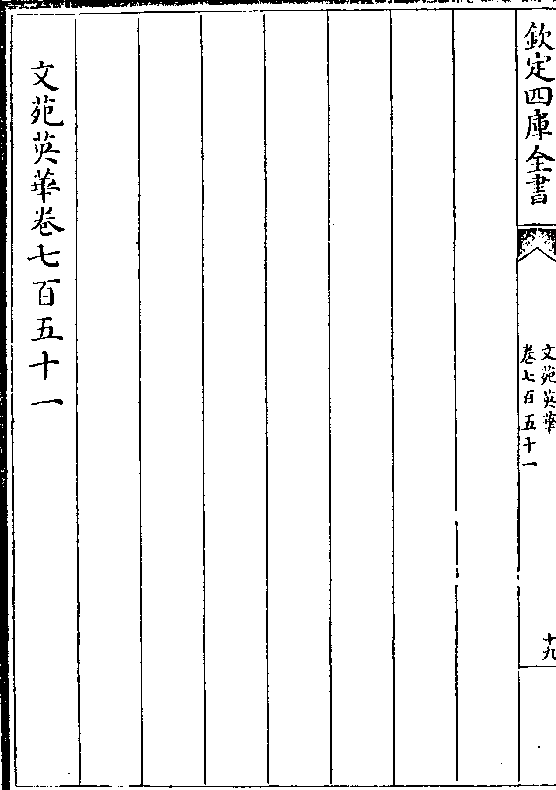 欽定四庫全書
文苑英華
卷七百五十一
十九
文苑英華卷七百五十一